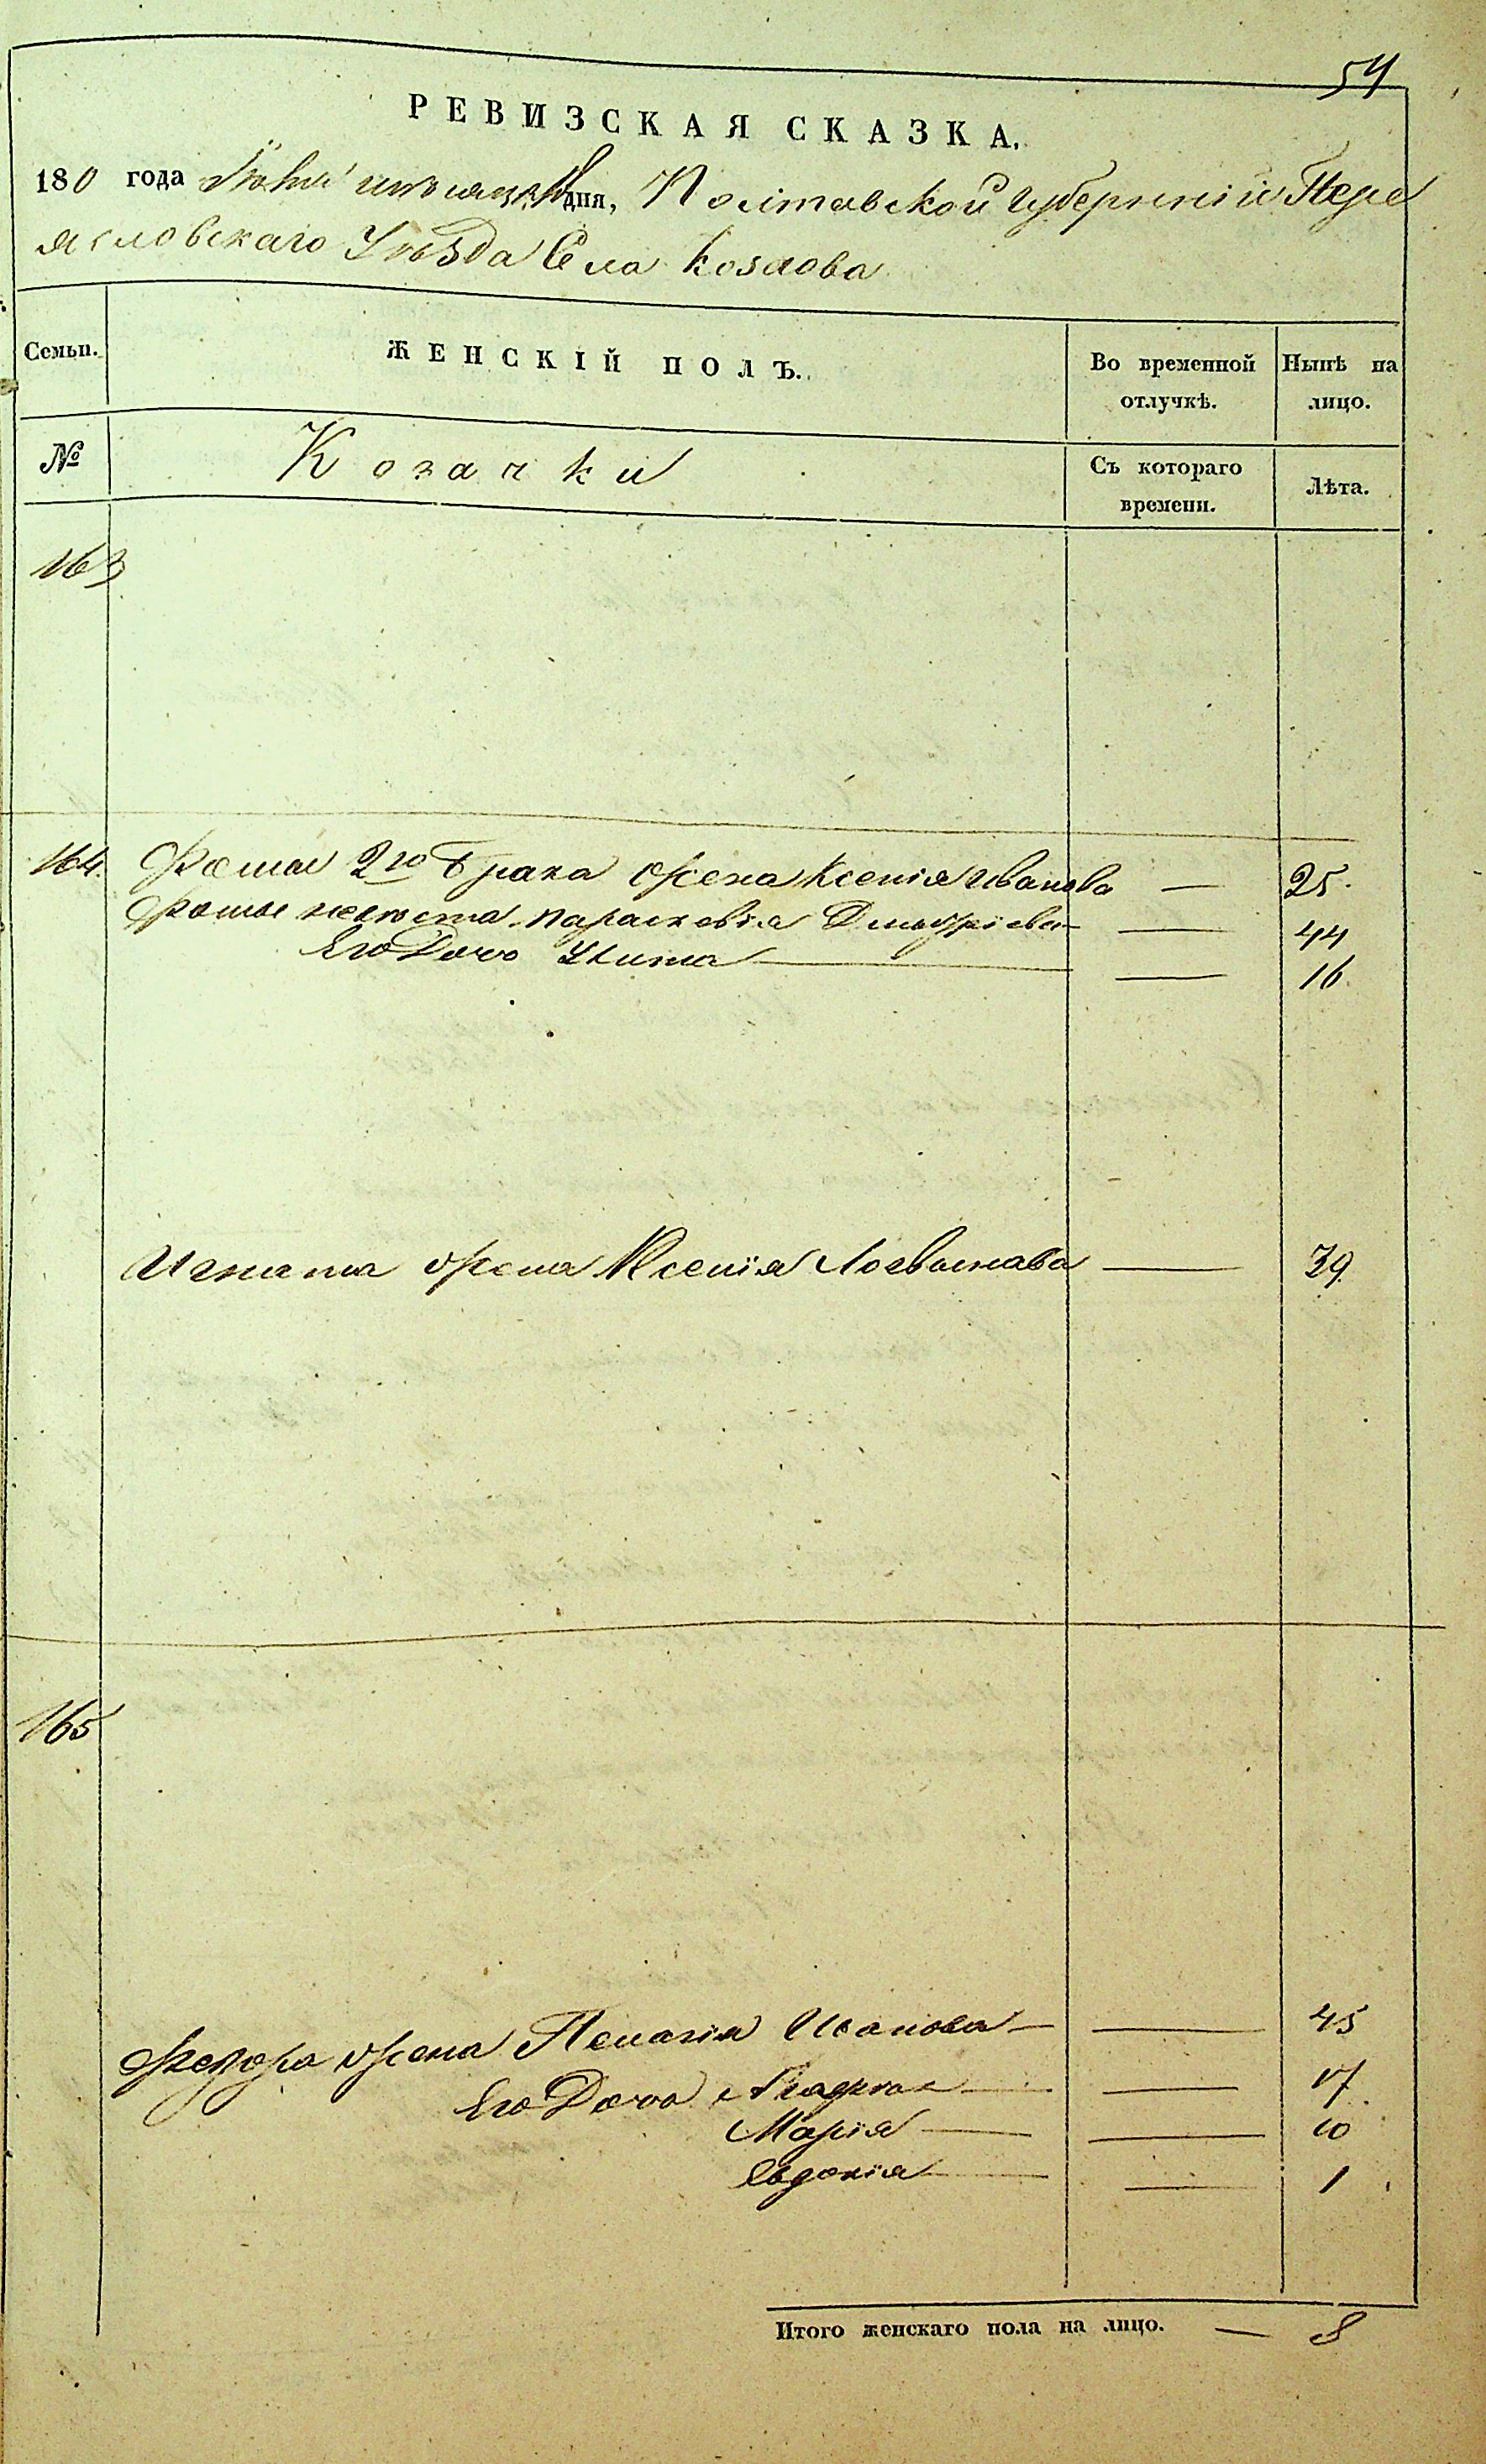 54
РЕВИЗСКАЯ СКАЗКА.
180 года мѣсяца дня, Полтавской Губерніи Пере
ясловскаго Уѣзда Села Козлова
Семьи. ЖЕНСКІЙ ПОЛЪ. Во временной отлучкѣ. Нынѣ на лицо.
№ Козачки Съ котораго времени. Лѣта.
163
164. Фомы 2го брака жена Ксенія Иванова — 25.
Фомы невѣста Параскевія Дмытріева — 44
Его Дочь — 16.
Игната жена Ксенія Логвынава — 39
165
Федора жена Пелагія — 45
Его Дочь — 17.
Марія — 10
Евдокія — 1
Итого женскаго пола на лицо. — 8